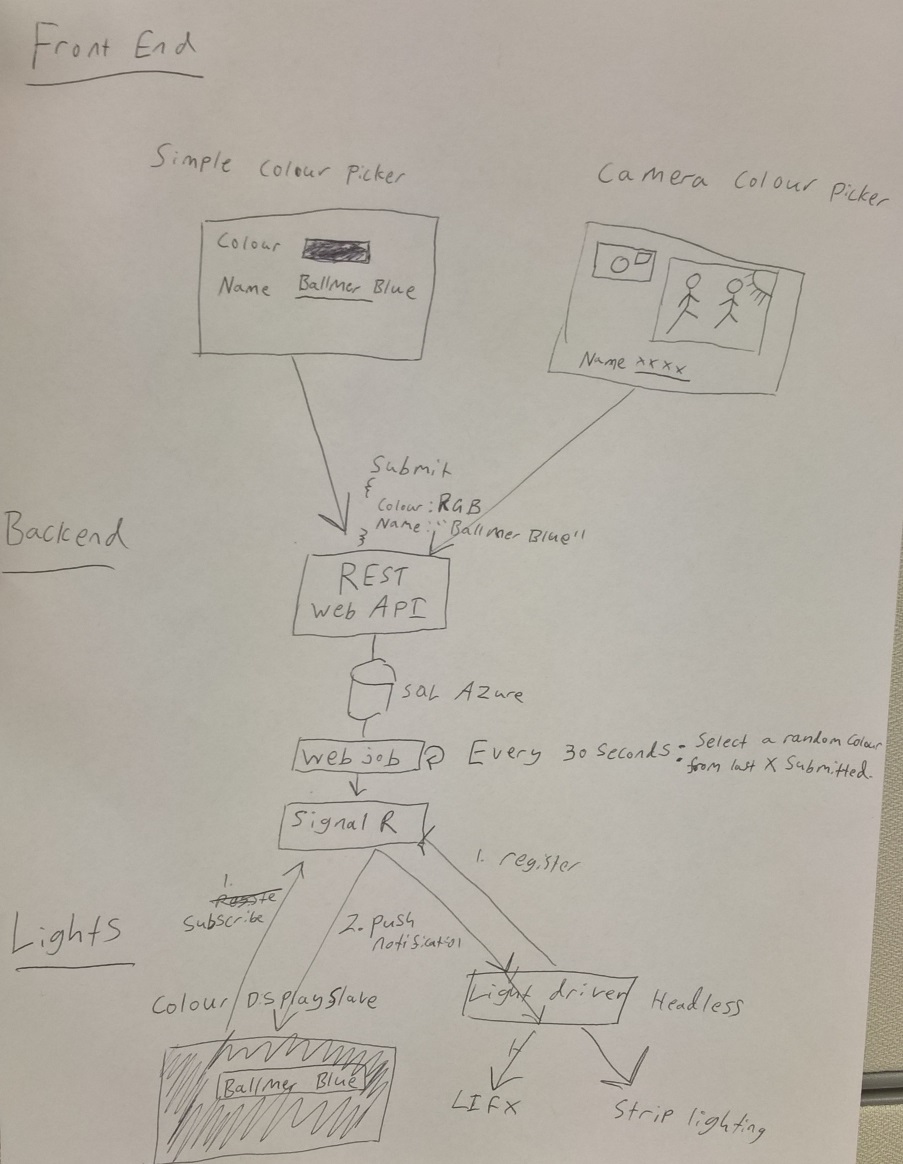 Front End
Simple Colour Picker
Camera Colour Picker
Colour
Name Ballmer Blue
Name xxxx
Submit
{
Colour : RGB
Name : "Ballmer Blue"
}
Backend
REST
Web API
SQL Azure
Web job
Every 30 seconds
: Select a random Colour
from last X Submitted
Signal R
1. register
1.
Subscribe
2. Push
notification
Lights
Colour Display Slave
Light driver
Headless
Ballmer Blue
LIFX
Strip lighting